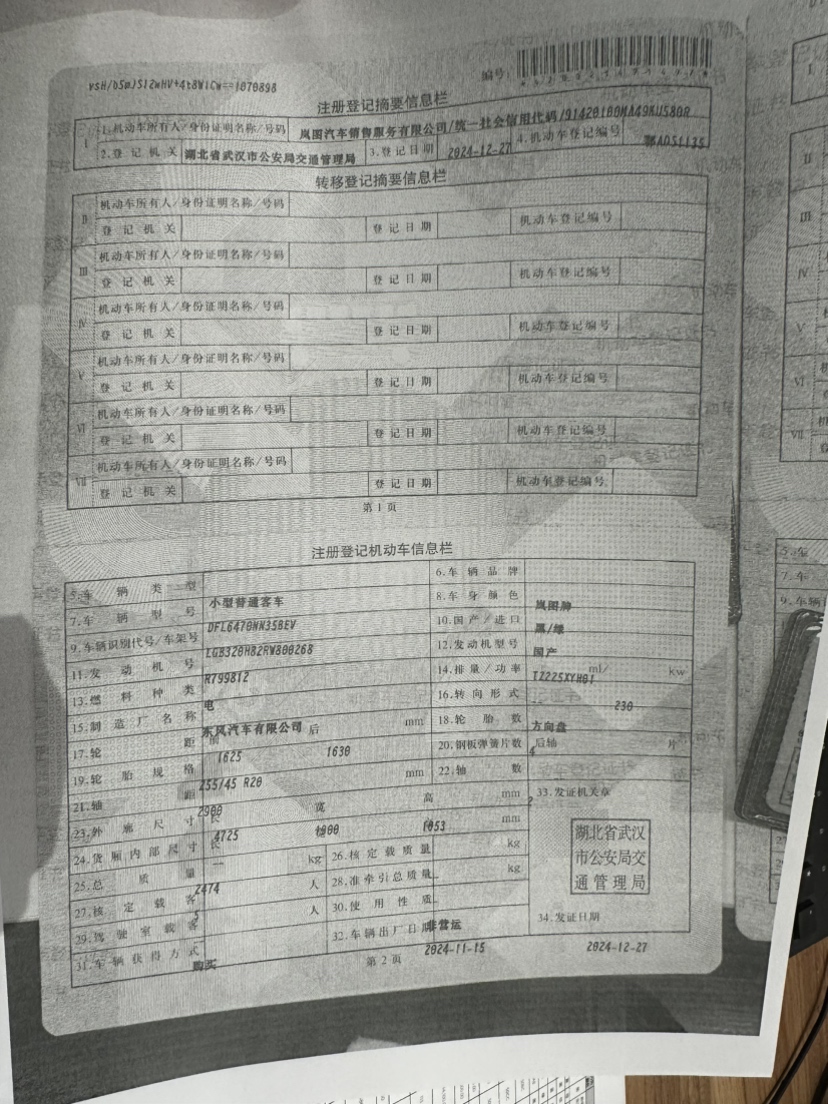 vsH/b5mJS12wHV+4t8W1Cw==1070898
编号:
注册登记摘要信息栏
I 1.机动车所有人/身份证明名称/号码 岚图汽车销售服务有限公司/统一社会信用代码/91420100MA49KU580R
2.登记机关 湖北省武汉市公安局交通管理局 3.登记日期 2024-12-27 4.机动车登记编号 鄂ADS1135
转移登记摘要信息栏
II 机动车所有人/身份证明名称/号码
登记机关 登记日期 机动车登记编号
III 机动车所有人/身份证明名称/号码
登记机关 登记日期 机动车登记编号
IV 机动车所有人/身份证明名称/号码
登记机关 登记日期 机动车登记编号
V 机动车所有人/身份证明名称/号码
登记机关 登记日期 机动车登记编号
VI 机动车所有人/身份证明名称/号码
登记机关 登记日期 机动车登记编号
VII 机动车所有人/身份证明名称/号码
登记机关 登记日期 机动车登记编号
第1页
注册登记机动车信息栏
5.车辆类型 小型普通客车 6.车辆品牌 岚图牌
7.车辆型号 DFL6470NN35BEV 8.车身颜色 黑/绿
9.车辆识别代号/车架号 LGB320H82RW800268 10.国产/进口 国产
11.发动机号 R799812 12.发动机型号 TZ225XYH01
13.燃料种类 电 14.排量/功率 -- ml/ 230 kw
15.制造厂名称 东风汽车有限公司 16.转向形式 方向盘
17.轮距 前 1625 后 1630 mm 18.轮胎数 4
19.轮胎规格 255/45 R20 20.钢板弹簧片数 后轴 片
21.轴距 2900 mm 22.轴数 2
23.外廓尺寸 长 4725 宽 1900 高 1653 mm 33.发证机关章
24.货厢内部尺寸 长 -- mm
25.总质量 2474 kg 26.核定载质量 kg
27.核定载客 5 人 28.准牵引总质量 kg
29.驾驶室载客 人 30.使用性质 非营运
31.车辆获得方式 购买 32.车辆出厂日期 2024-11-15 34.发证日期 2024-12-27
湖北省武汉
市公安局交
通管理局
第2页